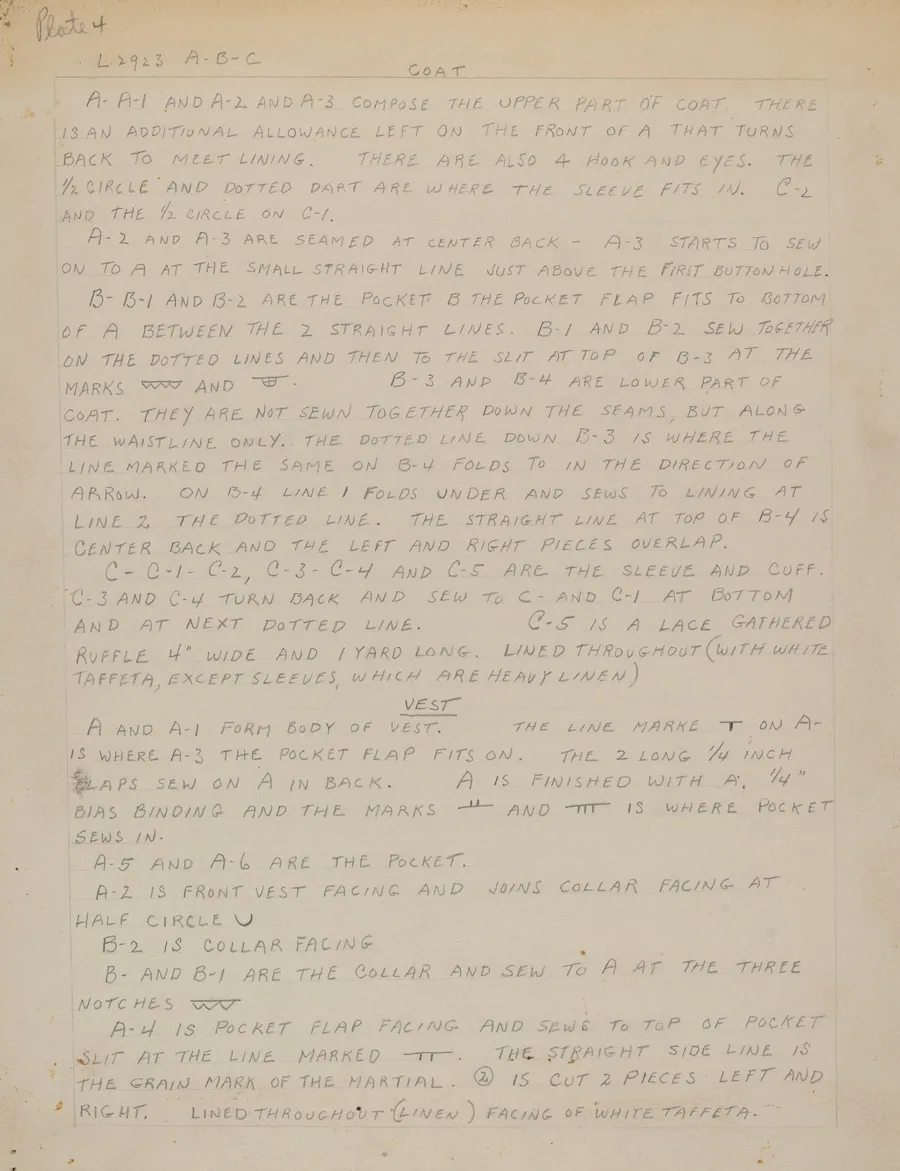 Plate 4
L.2923 A-B-C
COAT
A- A-1 AND A-2 AND A-3 COMPOSE THE UPPER PART OF COAT. THERE
IS AN ADDITIONAL ALLOWANCE LEFT ON THE FRONT OF A THAT TURNS
BACK TO MEET LINING. THERE ARE ALSO 4 HOOK AND EYES. THE
1/2 CIRCLE AND DOTTED DART ARE WHERE THE SLEEVE FITS IN. C-2
AND THE 1/2 CIRCLE ON C-1.
A-2 AND A-3 ARE SEAMED AT CENTER BACK - A-3 STARTS TO SEW
ON TO A AT THE SMALL STRAIGHT LINE JUST ABOVE THE FIRST BUTTON HOLE.
B- B-1 AND B-2 ARE THE POCKET B THE POCKET FLAP FITS TO BOTTOM
OF A BETWEEN THE 2 STRAIGHT LINES. B-1 AND B-2 SEW TOGETHER
ON THE DOTTED LINES AND THEN TO THE SLIT AT TOP OF B-3 AT THE
MARKS AND . B-3 AND B-4 ARE LOWER PART OF
COAT. THEY ARE NOT SEWN TOGETHER DOWN THE SEAMS, BUT ALONG
THE WAISTLINE ONLY. THE DOTTED LINE DOWN B-3 IS WHERE THE
LINE MARKED THE SAME ON B-4 FOLDS TO IN THE DIRECTION OF
ARROW. ON B-4 LINE 1 FOLDS UNDER AND SEWS TO LINING AT
LINE 2 THE DOTTED LINE. THE STRAIGHT LINE AT TOP OF B-4 IS
CENTER BACK AND THE LEFT AND RIGHT PIECES OVERLAP.
C- C-1- C-2, C-3- C-4 AND C-5 ARE THE SLEEVE AND CUFF.
C-3 AND C-4 TURN BACK AND SEW TO C- AND C-1 AT BOTTOM
AND AT NEXT DOTTED LINE. C-5 IS A LACE GATHERED
RUFFLE 4" WIDE AND 1 YARD LONG. LINED THROUGHOUT (WITH WHITE
TAFFETA, EXCEPT SLEEVES, WHICH ARE HEAVY LINEN)
VEST
A AND A-1 FORM BODY OF VEST. THE LINE MARKE ON A-
IS WHERE A-3 THE POCKET FLAP FITS ON. THE 2 LONG 1/4 INCH
FLAPS SEW ON A IN BACK. A IS FINISHED WITH A. 1/4"
BIAS BINDING AND THE MARKS AND IS WHERE POCKET
SEWS IN.
A-5 AND A-6 ARE THE POCKET.
A-2 IS FRONT VEST FACING AND JOINS COLLAR FACING AT
HALF CIRCLE ∪
B-2 IS COLLAR FACING
B- AND B-1 ARE THE COLLAR AND SEW TO A AT THE THREE
NOTCHES
A-4 IS POCKET FLAP FACING AND SEWS TO TOP OF POCKET
SLIT AT THE LINE MARKED . THE STRAIGHT SIDE LINE IS
THE GRAIN MARK OF THE MARTIAL. ② IS CUT 2 PIECES LEFT AND
RIGHT. LINED THROUGHOUT (LINEN) FACING OF WHITE TAFFETA.